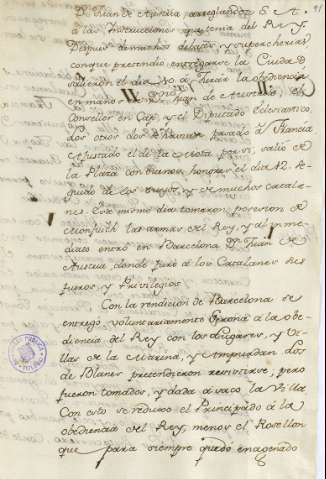 D. Juan de Austria, arreglandose S. A.
à las Instrucciones que tenia del Rey.
Despues de muchas delaxes y supercherias
conque pretendio entregarse la Ciudad,
salieron el dia 10. à darle la obediencia
en manos de D. Juan de Austria, el
Conseller en Cap, y el Diputado Eclesiastico.
Los otros dos havian pasado à Francia
Ajustado el de la Mota salio de
la Plaza con buenos honores el dia 12. se-
guido de los suyos, y de muchos Catala-
nes. Este mismo dia tomaron posesion de
Monjuich las armas del Rey, y al inme-
diato entrò en Barcelona D. Juan de
Austria, donde jurò à los Catalanes sus
fueros, y Privilegios.
Con la rendicion de Barcelona se
entregò voluntariamente Gerona à la obe-
diencia del Rey con los Lugares, y Vi-
llas de la Marina, y Ampurdan. Los
de Blanes pretendieron resistirse, pero
fueron tomados, y dada à saco la Villa
Con esto se reduxo el Principado à la
obediencia del Rey, menos el Rosellon
que para siempre quedò enagenado